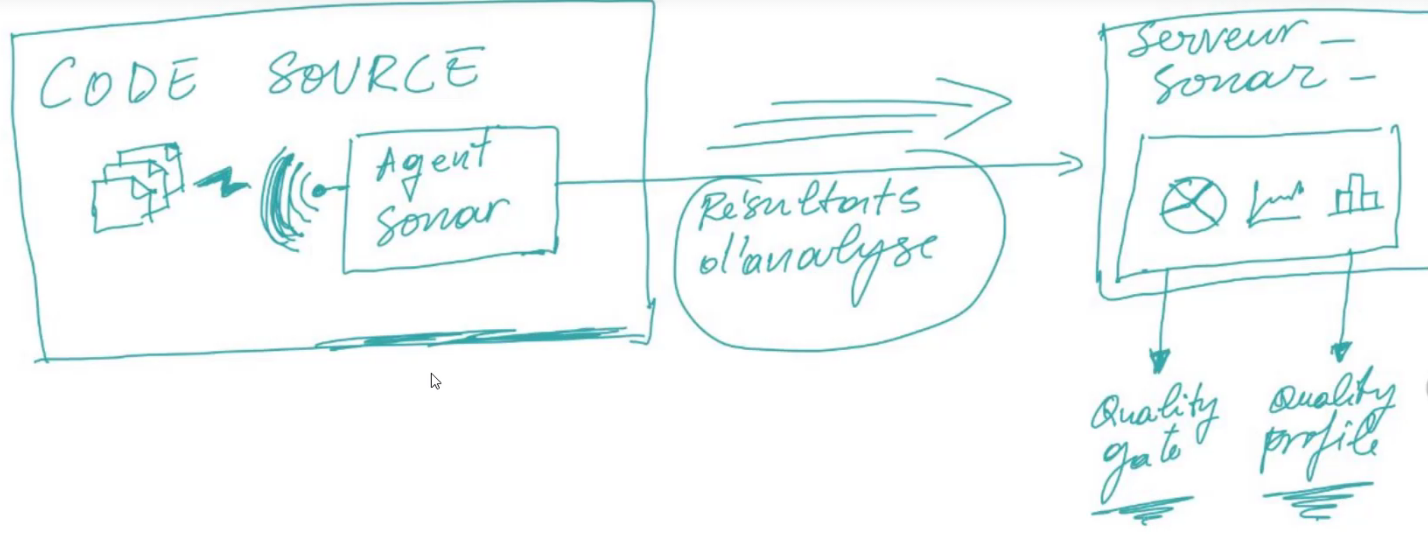 CODE SOURCE
Agent
sonar
Résultats
d'analyse
Serveur
sonar
Quality
gate
Quality
profile